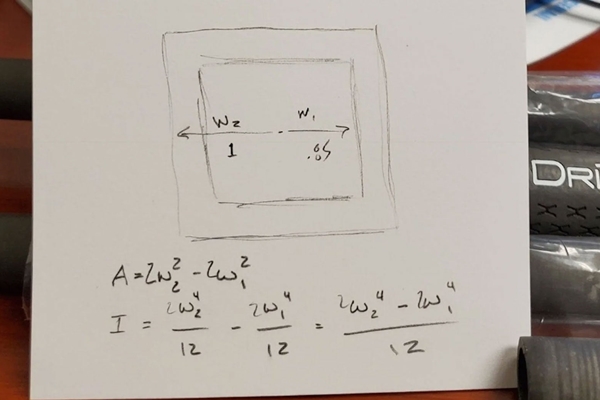 W₂ W₁
1 .85
DRI
A = 2w₂² - 2w₁²
I = 2w₂⁴/12 - 2w₁⁴/12 = (2w₂⁴ - 2w₁⁴)/12